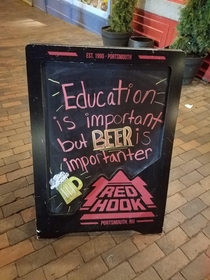 EST. 1996 - PORTSMOUTH
Education
is important
but BEER is
importanter
RED
HOOK
PORTSMOUTH, NH